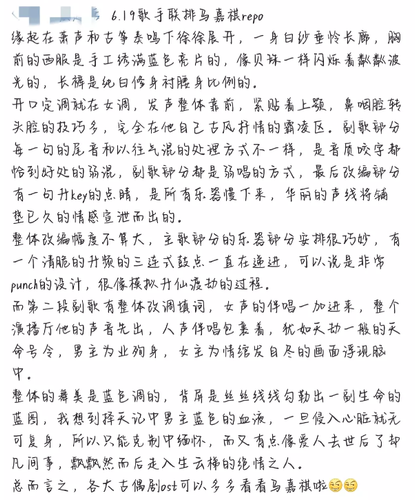 6.19歌手联排马嘉祺repo
缘起在萧声和古筝奏鸣下徐徐展开，一身白纱垂怜长廊，胸
前的西服是手工绣满蓝色亮片的，像贝珠一样闪烁着粼粼波
光的，长裤是纯白修身衬腰身比例的。
开口定调就在女调，发声整体靠前，紧贴着上颚，鼻咽腔转
头腔的技巧多，完全在他自己古风抒情的霸凌区。副歌部分
每一句的尾音和以往气混的处理方式不一样，是音质咬字都
恰到好处的弱混，副歌部分都是弱唱的方式，最后改编部分
有一句升key的点睛，是所有乐器慢下来，华丽的声线将铺
垫已久的情感宣泄而出的。
整体改编幅度不算大，主歌部分的乐器部分安排很巧妙，有
一个清脆的升频的三连式鼓点一直在递进，可以说是非常
punch的设计，很像模拟升仙渡劫的过程。
而第二段副歌有整体改调填词，女声的伴唱一加进来，整个
演播厅他的声音先出，人声伴唱包裹着，犹如天劫一般的天
命号令，男主为业殉身，女主为情绾发自尽的画面浮现脑
中。
整体的舞美是蓝色调的，背屏是丝丝线线勾勒出一副生命的
蓝图，我想到择天记中男主蓝色的血液，一旦侵入心脏就无
可复身，所以只能克制中缅怀，而又有点像爱人去世后了却
凡间事，飘飘然而后走入生云梯的绝情之人。
总而言之，各大古偶剧ost可以多多看看马嘉祺啦